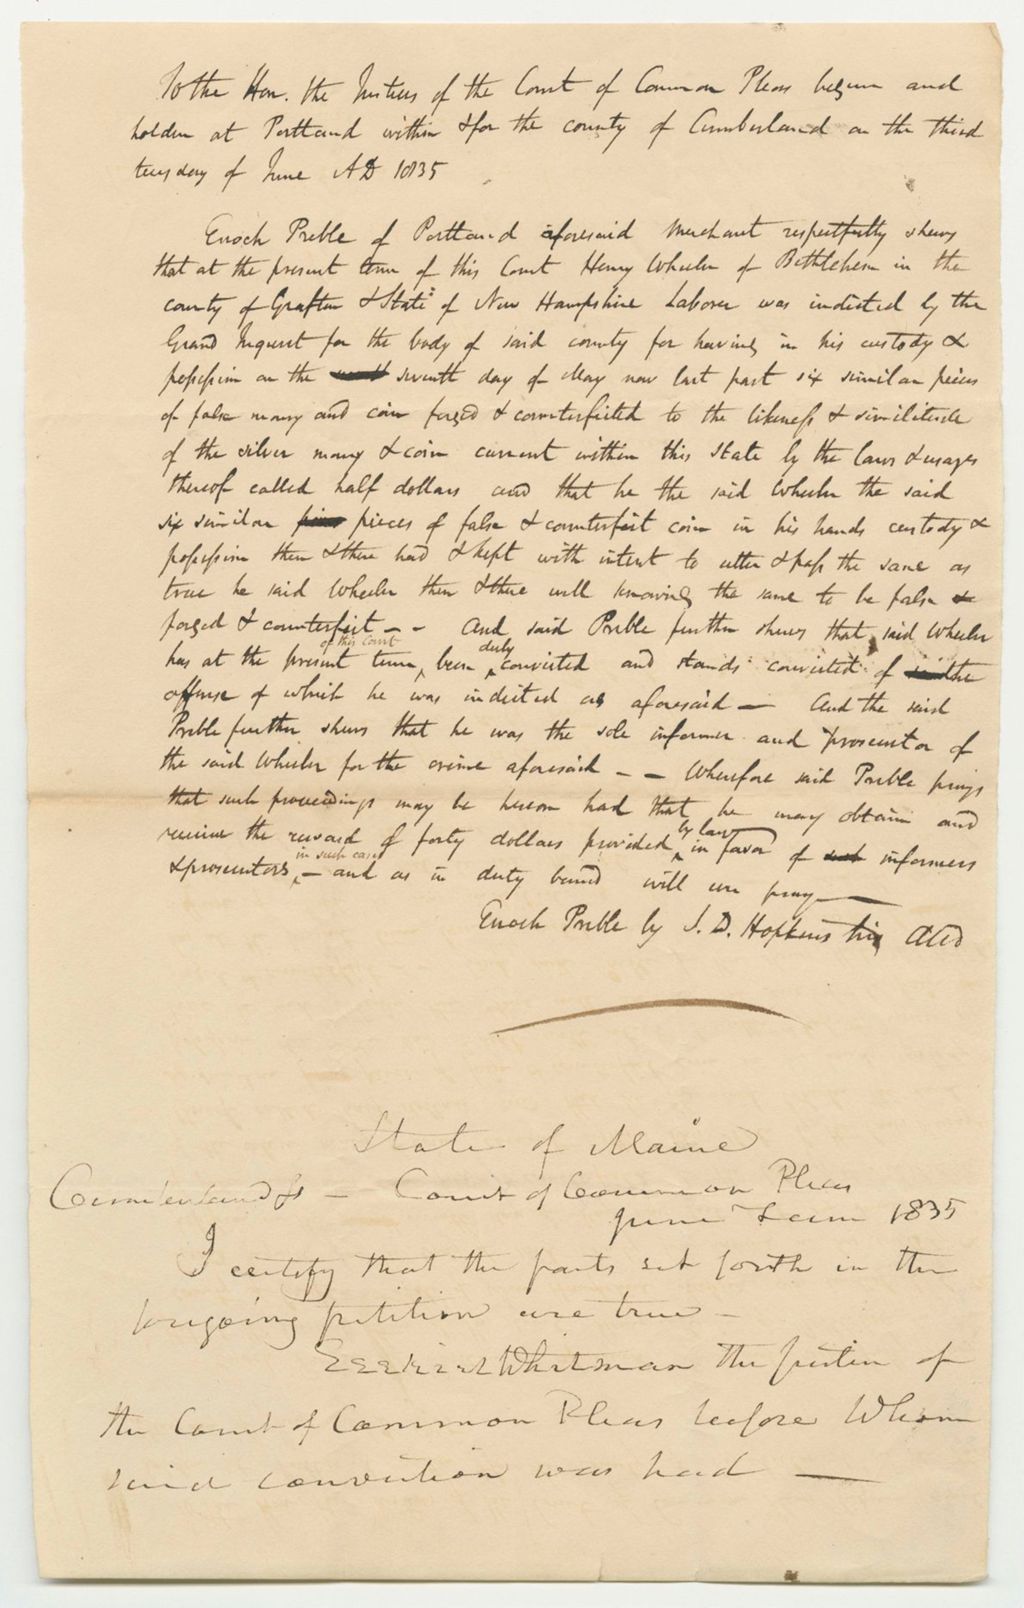 To the Hon. the Justices of the Court of Common Pleas begun and
holden at Portland within & for the county of Cumberland on the third
tuesday of June AD 1835
Enoch Preble of Portland aforesaid Merchant respectfully shews
that at the present term of this Court Henry Wheeler of Bethlehem in the
county of Grafton & State of New Hampshire Laborer was indicted by the
Grand Inquest for the body of said county for having in his custody &
possession on the seventh day of May now last past six similar pieces
of false money and coin forged & counterfeited to the likeness & similitude
of the silver money & coin current within this State by the laws & usages
thereof called half dollars and that he the said Wheeler the said
six similar pieces of false & counterfeit coin in his hands custody &
possession then & there had & kept with intent to utter & pass the same as
true he said Wheeler then & there well knowing the same to be false &
forged & counterfeit - - And said Preble further shews that said Wheeler
has at the present term of this Court been duly convicted and stands convicted of the
offense of which he was indicted as aforesaid — And the said
Preble further shews that he was the sole informer and prosecutor of
the said Wheeler for the crime aforesaid - - Wherefore said Preble prays
that such proceedings may be hereon had that he may obtain and
receive the reward of forty dollars provided by law in favor of informers
& prosecutors in such cases — and as in duty bound will ever pray —
Enoch Preble by J. D. Hopkins his Atto
State of Maine
Cumberland ss — Court of Common Pleas
June Term 1835
I certify that the facts set forth in the
foregoing petition are true —
Ezekiel Whitman the Justice of
the Court of Common Pleas before Whom
said conviction was had —